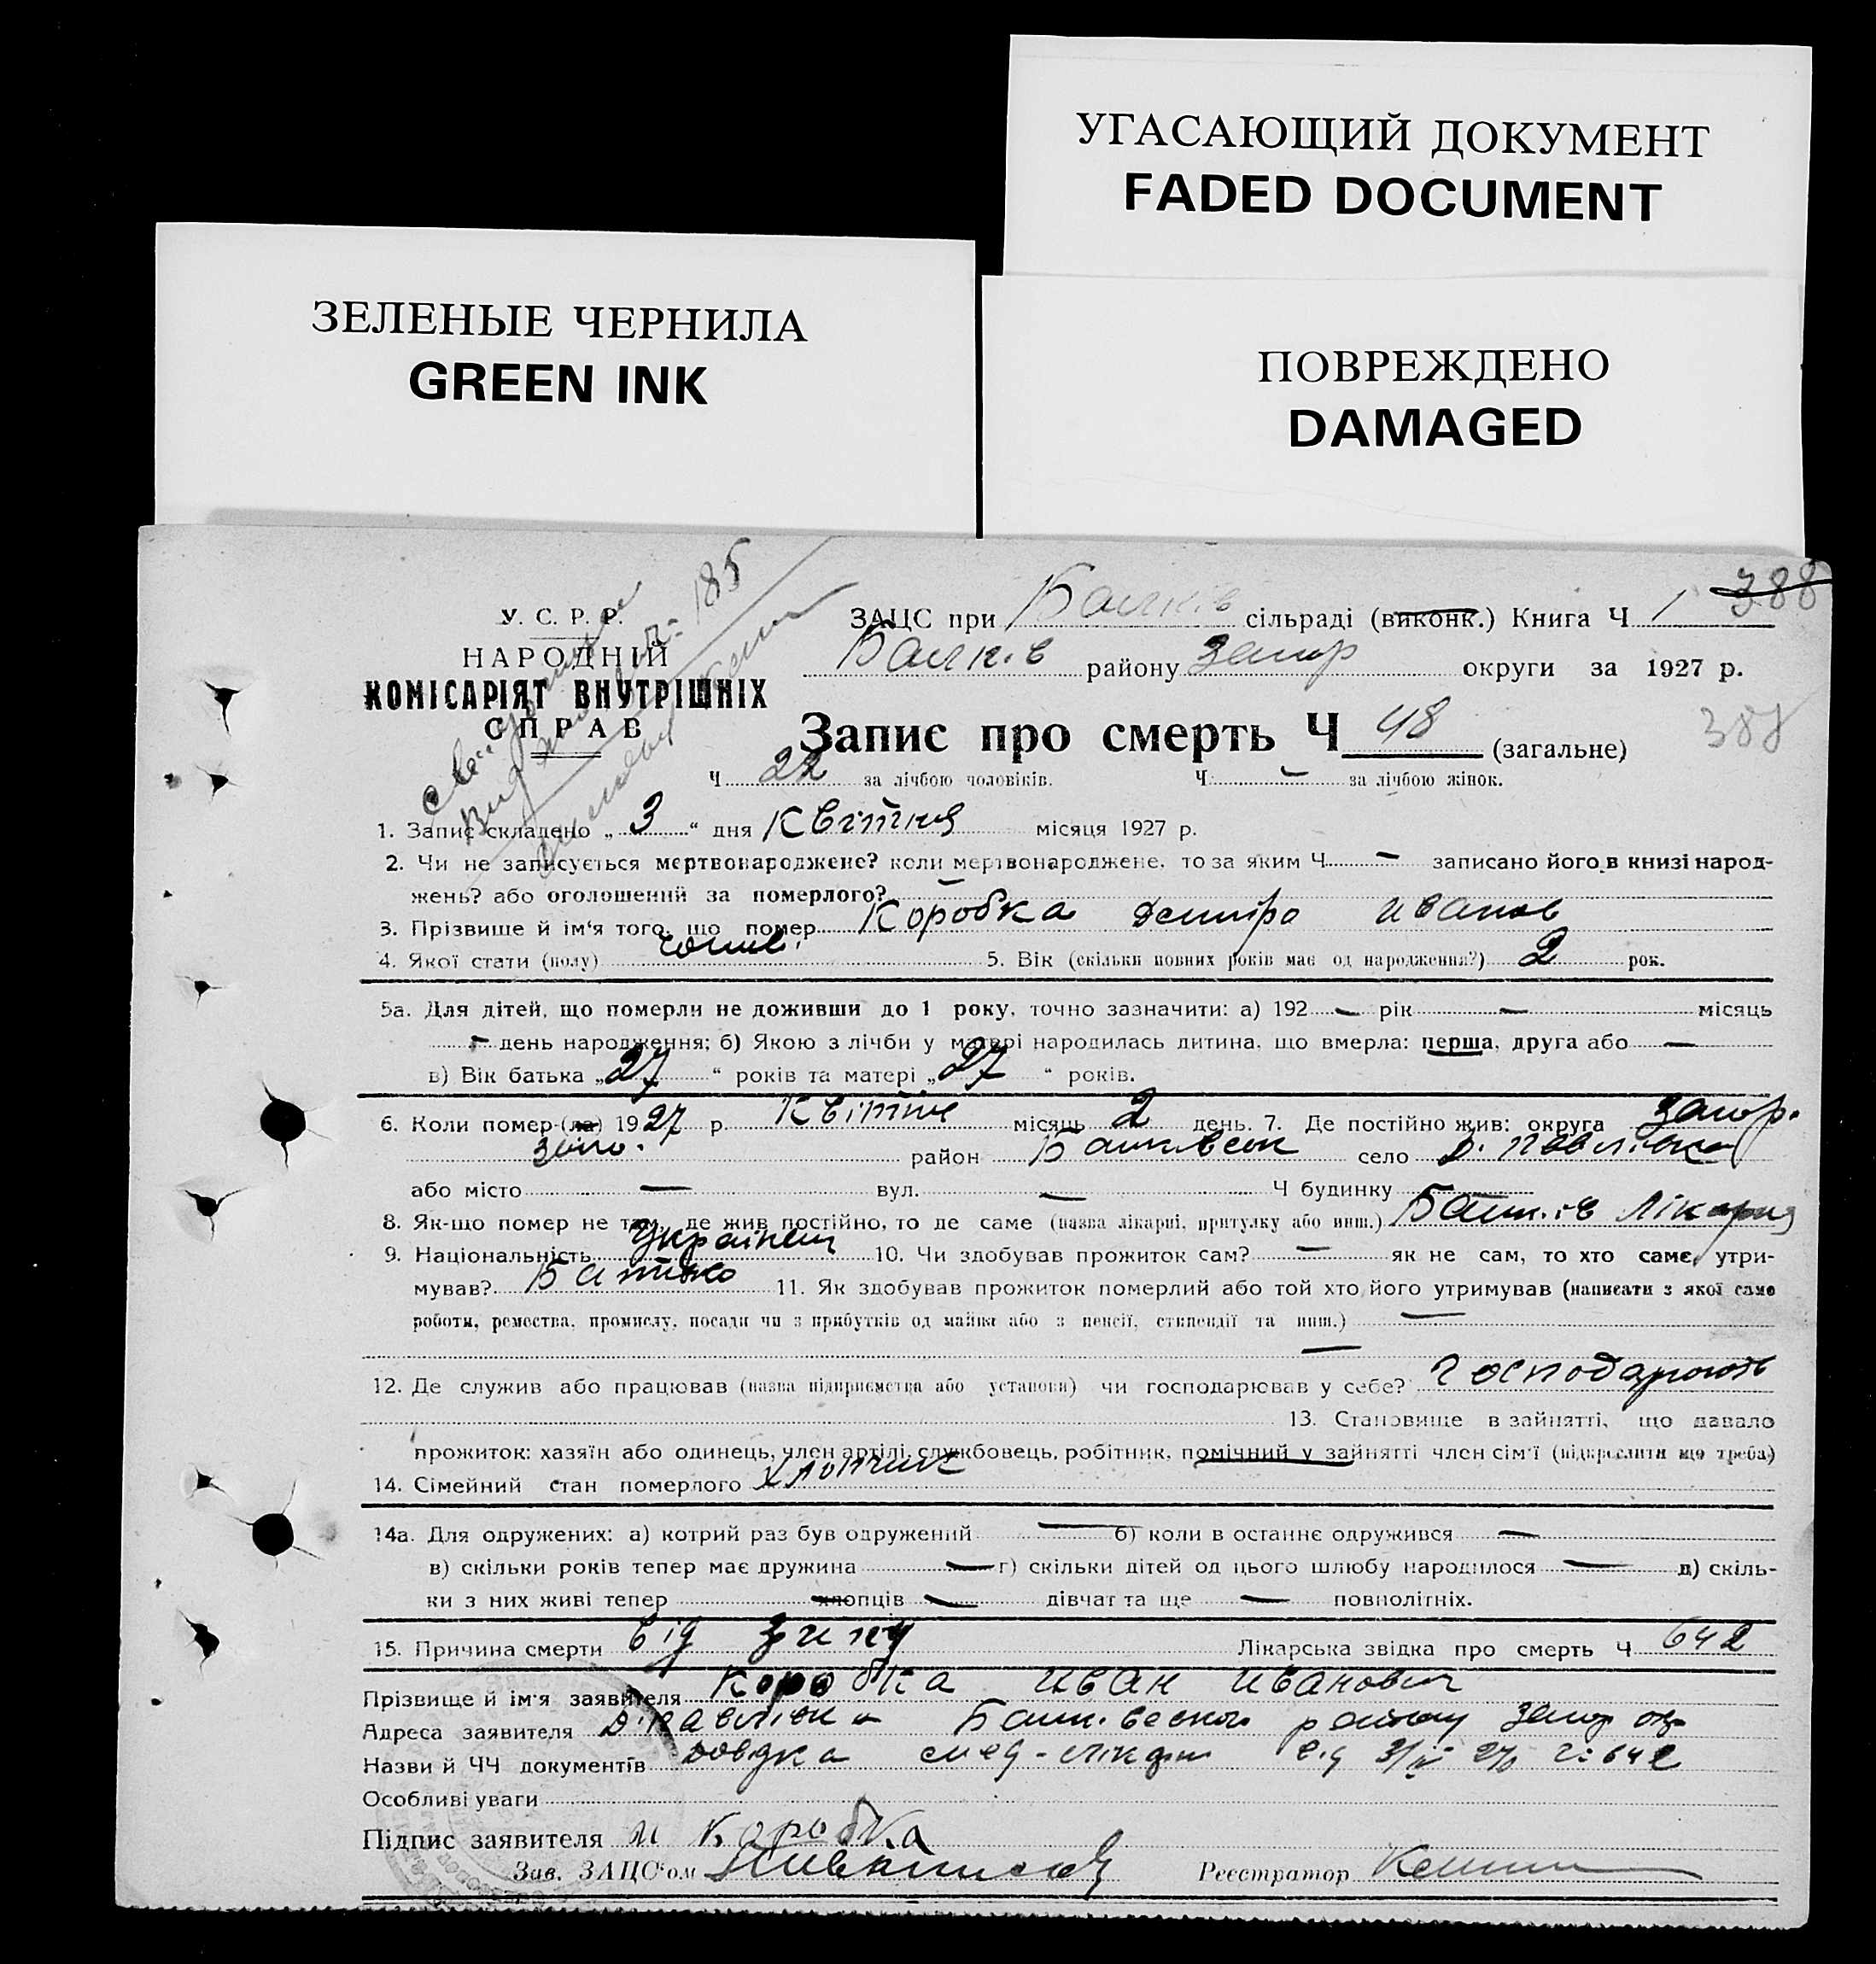 УГАСАЮЩИЙ ДОКУМЕНТ
FADED DOCUMENT
ЗЕЛЕНЫЕ ЧЕРНИЛА
GREEN INK
ПОВРЕЖДЕНО
DAMAGED
388
185
У. С. Р. Р.
НАРОДНІЙ
КОМІСАРІЯТ ВНУТРІШНІХ
СПРАВ
ЗАЦС при Балків сільраді (виконк.) Книга Ч 1
Балків району Запор округи за 1927 р.
Запис про смерть Ч 48 (загальне)
388
Ч 22 за лічбою чоловіків. Ч — за лічбою жінок.
1. Запис складено „ 3 “ дня Квітня місяця 1927 р.
2. Чи не записується мертвонароджене? коли мертвонароджене, то за яким Ч — записано його в книзі народ-
жень? або оголошений за померлого? —
3. Прізвище й ім'я того, що помер Коробка Дмитро Иванов
4. Якої стати (полу) 5. Вік (скільки повних років має од народження?) 2 рок.
5а. Для дітей, що померли не доживши до 1 року, точно зазначити: а) 192 — рік — місяць
— день народження; б) Якою з лічби у матері народилась дитина, що вмерла: перша, друга або —
в) Вік батька „ 27 “ років та матері „ 27 “ років.
6. Коли помер-(ла) 1927 р. Квітня місяць 2 день. 7. Де постійно жив: округа Запор.
район село
або місто — вул. — Ч будинку
8. Як-що помер не там, де жив постійно, то де саме (назва лікарні, притулку або инш.) Лікарня
9. Національність Українец 10. Чи здобував прожиток сам? — як не сам, то хто саме, утри-
мував? Батько 11. Як здобував прожиток померлий або той хто його утримував (написати з якої саме
роботи, ремества, промислу, посади чи з прибутків од майна або з пенсії, стипендії та инш.) —
—
12. Де служив або працював (назва підприємства або установи) чи господарював у себе? Господарють
13. Становище в зайнятті, що давало
прожиток: хазяїн або одинець, член артілі, службовець, робітник, помічний у зайнятті член сім'ї (підкреслити що треба)
14. Сімейний стан померлого Хлопчик
14а. Для одружених: а) котрий раз був одружений — б) коли в останнє одружився —
в) скільки років тепер має дружина — г) скільки дітей од цього шлюбу народилося — д) скіль-
ки з них живі тепер хлопців — дівчат та ще — повнолітніх.
15. Причина смерти Від Лікарська звідка про смерть Ч 642
Прізвище й ім'я заявителя Коробка Иван Иванович
Адреса заявителя району Запор ок
Назви й ЧЧ документів Довідка від 3/IV 27р Ч: 642
Особливі уваги
Підпис заявителя И Коробка
Зав. ЗАЦС'ом Реєстратор